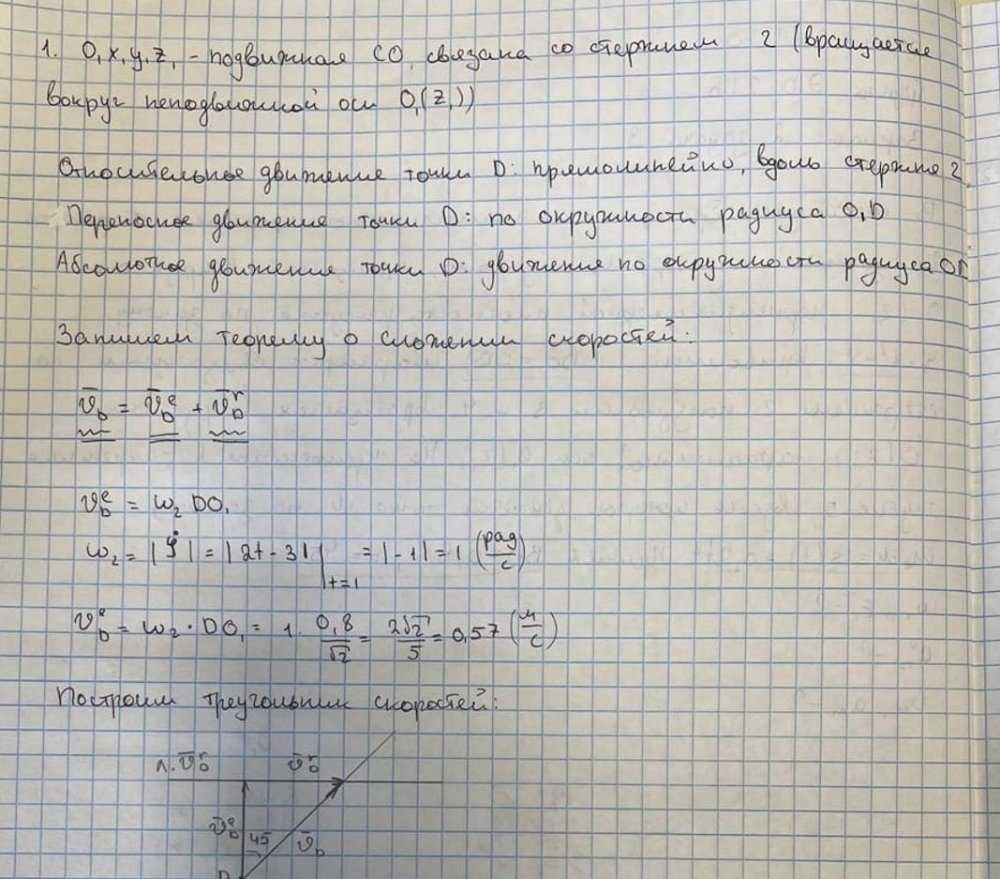 1. O₁x₁y₁z₁ - подвижная СО, связана со стержнем 2 (вращается
вокруг неподвижной оси O₁(z₁))
Относительное движение точки D: прямолинейно, вдоль стержня 2.
Переносное движение точки D: по окружности радиуса O₁D
Абсолютное движение точки D: движение по окружности радиуса OD
Запишем теорему о сложении скоростей:
v̄_D = v̄_D^e + v̄_D^r
v_D^e = ω₂ DO₁
ω₂ = |φ̇| = |2t - 3| |t=1 = |-1| = 1 (рад/с)
v_D^e = ω₂ · DO₁ = 1 · 0,8/√2 = 2√2/5 = 0,57 (м/с)
Построим треугольник скоростей:
л. v̄_D^r v̄_D^r
v̄_D^e 45 v̄_D
D